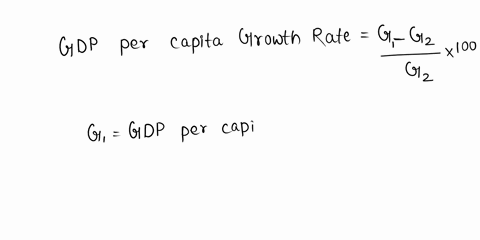 GDP per capita Growth Rate = G₁ - G₂ / G₂ × 100
G₁ = GDP per capi